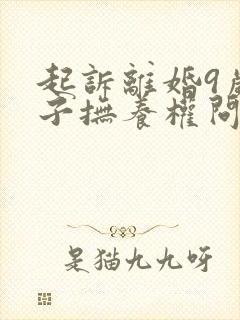 起訴離婚9歲
子撫養權問
是猫九九呀